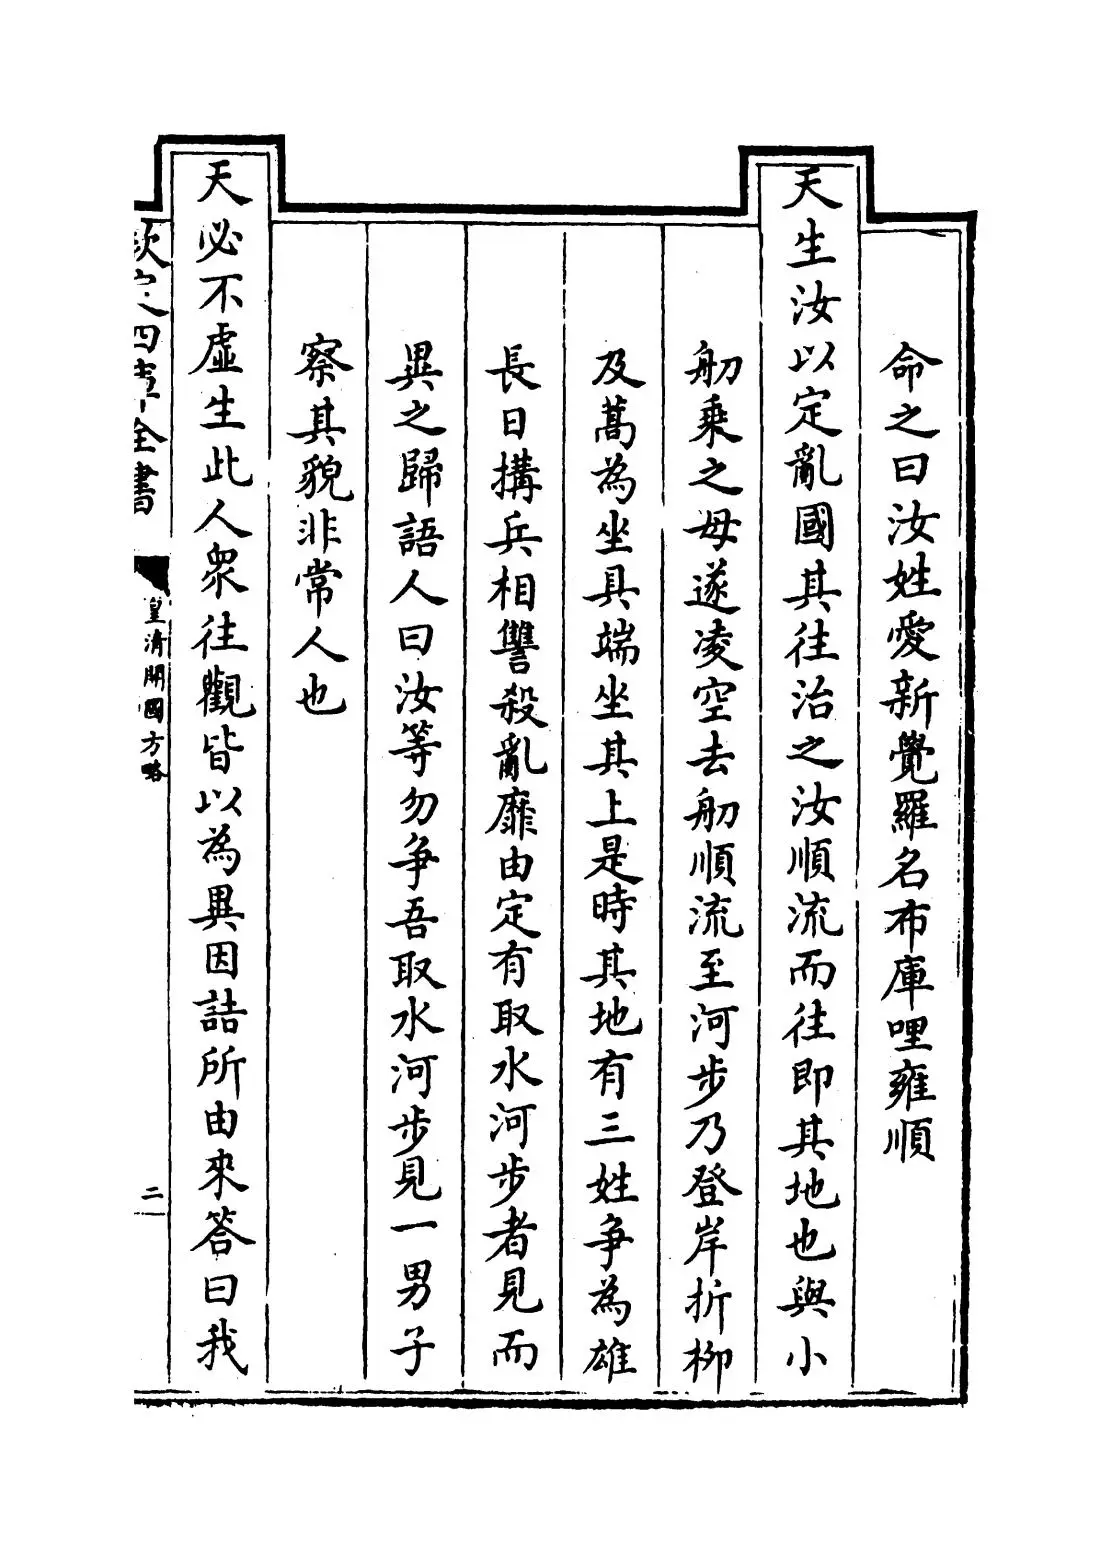 命之曰汝姓愛新覺羅名布庫哩雍順
天生汝以定亂國其往治之汝順流而往即其地也與小
舠乘之母遂凌空去舠順流至河步乃登岸折柳
及蒿為坐具端坐其上是時其地有三姓争為雄
長日搆兵相讐殺亂靡由定有取水河步者見而
異之歸語人曰汝等勿争吾取水河步見一男子
察其貌非常人也
天必不虚生此人衆往觀皆以為異因詰所由來答曰我
欽定四庫全書
皇清開國方略
二